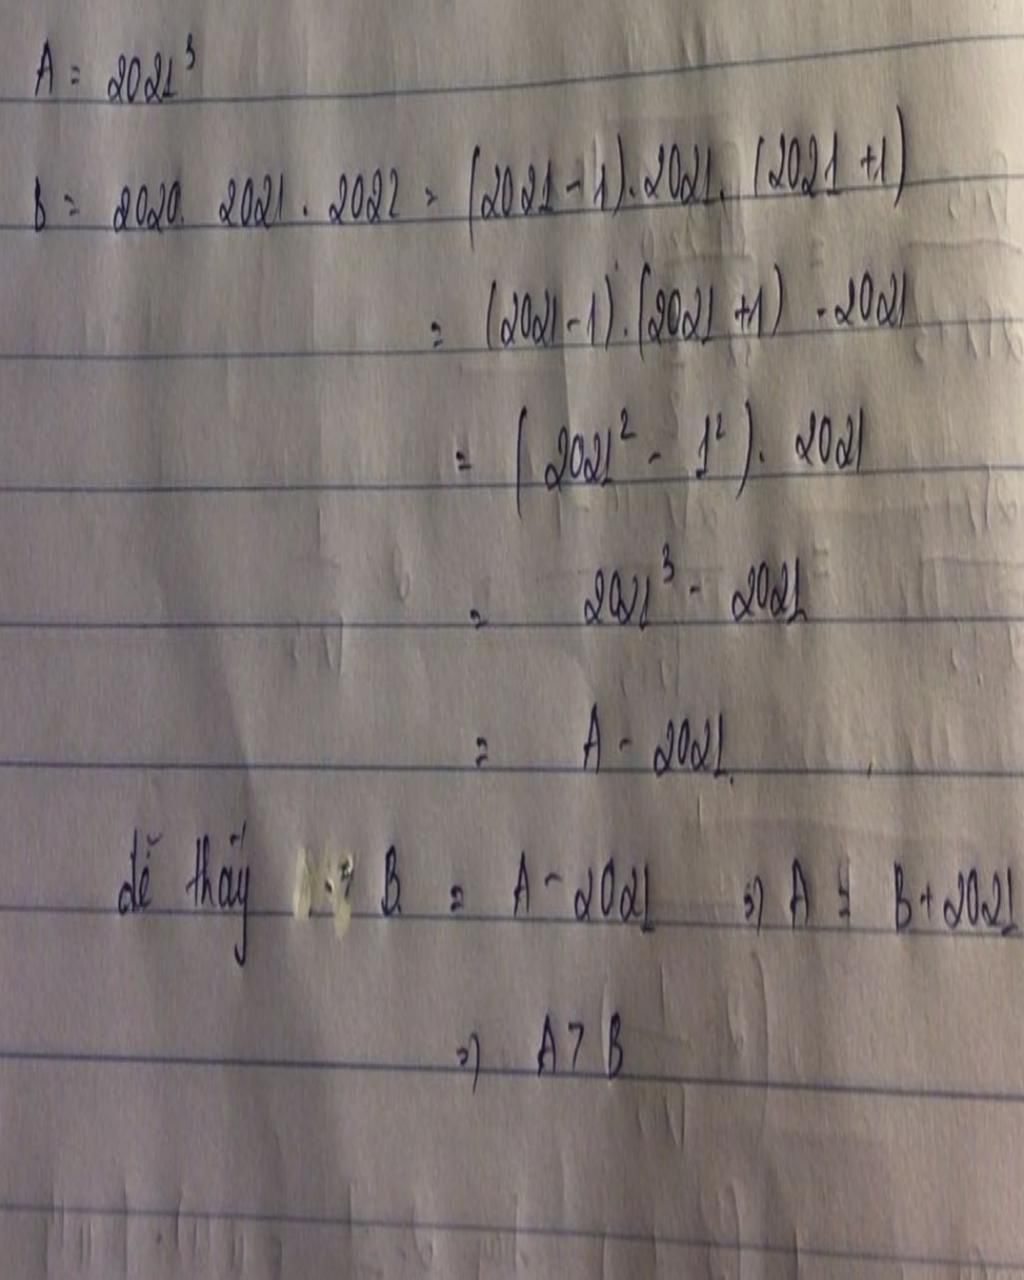 A = 2021³
B = 2020. 2021 . 2022 = (2021-1).2021. (2021+1)
= (2021-1).(2021+1) .2021
= (2021² - 1²). 2021
= 2021³ - 2021
= A - 2021.
dễ thấy B = A - 2021 => A = B+2021
=> A > B